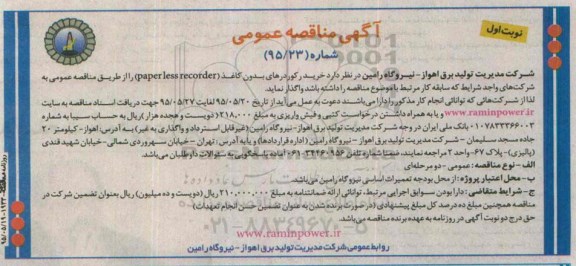 آگهی مناقصه عمومی
شماره (۹۵/۲۳)
نوبت اول
شرکت مدیریت تولید برق اهواز - نیروگاه رامین در نظر دارد خرید رکوردرهای بدون کاغذ (paperless recorder) را از طریق مناقصه عمومی به
شرکت‌های واجد شرایط که سابقه کار مرتبط با موضوع مناقصه را داشته باشد واگذار نماید.
لذا از شرکت‌هائی که توانائی انجام کار مذکور را دارا می‌باشند دعوت به عمل می‌آید از تاریخ ۹۵/۰۵/۲۰ لغایت ۹۵/۰۵/۲۷ جهت دریافت اسناد مناقصه به سایت
www.raminpower.ir و یا به همراه داشتن درخواست کتبی و فیش واریزی به مبلغ ۲۱۸,۰۰۰ (دویست و هجده هزار ریال) به حساب سیبا به شماره
۰۱۰۷۸۳۳۳۶۶۰۰۳ بانک ملی ایران در وجه شرکت مدیریت تولید برق اهواز - نیروگاه رامین (غیرقابل استرداد و واگذاری به غیر) به آدرس: اهواز - کیلومتر ۲۰
جاده مسجد سلیمان - شرکت مدیریت تولید برق اهواز - نیروگاه رامین (اداره قراردادها) و یا به آدرس: تهران - خیابان سهروردی شمالی - خیابان شهید قندی
(پالیزی) - پلاک ۶۷- واحد ۲ مراجعه نمایند، ضمناً شماره تلفن آماده پاسخگویی به سئوالات داوطلبان می‌باشد.
الف - نوع مناقصه: عمومی - دو مرحله‌ای
ب- محل اعتبار پروژه: از محل بودجه تعمیرات اساسی نیروگاه رامین می‌باشد.
ج- شرایط متقاضی: دارا بودن سوابق اجرایی مرتبط، توانائی ارائه ضمانتنامه به مبلغ ۲۱۰,۰۰۰,۰۰۰ ریال (دویست و ده میلیون) ریال بعنوان تضمین شرکت در
مناقصه همچنین مبلغ ده درصد کل مبلغ پیشنهادی (در صورت برنده شدن به عنوان تضمین حسن انجام تعهدات)
حق درج دو نوبت آگهی در روزنامه به عهده برنده مناقصه می‌باشد.
www.raminpower.ir
روابط عمومی شرکت مدیریت تولید برق اهواز - نیروگاه رامین